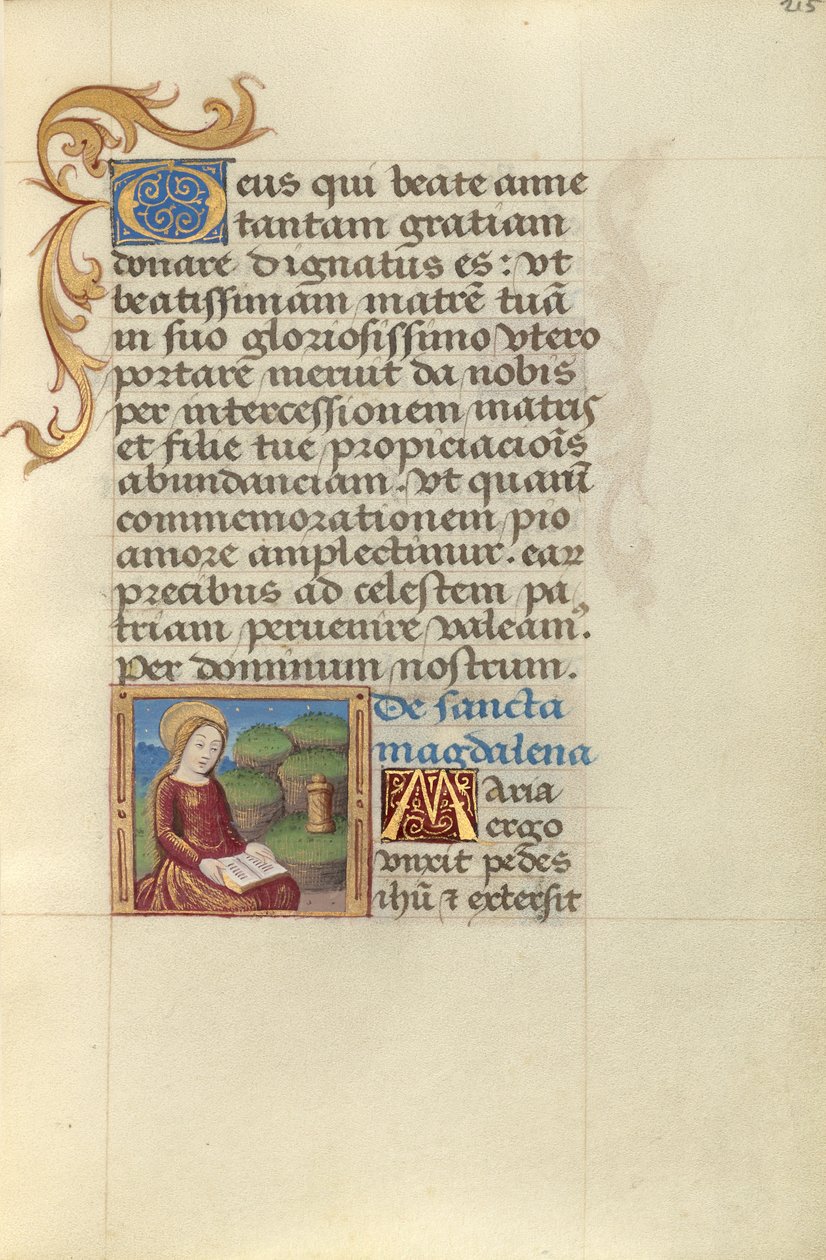 215
Deus qui beate anne
tantam gratiam
donare dignatus es: vt
beatissimam matrē tuā
in suo gloriosissimo vtero
portarē meruit da nobis
per intercessionem matris
et filie tue propiciacioīs
abundanciam. vt quarū
commemorationem pio
amore amplectimur. eaꝝ
precibus ad celestem pa
triam peruenire valeamꝰ.
Per dominum nostrum.
De sancta
magdalena
Maria
ergo
vnxit pedes
ihū ⁊ extersit